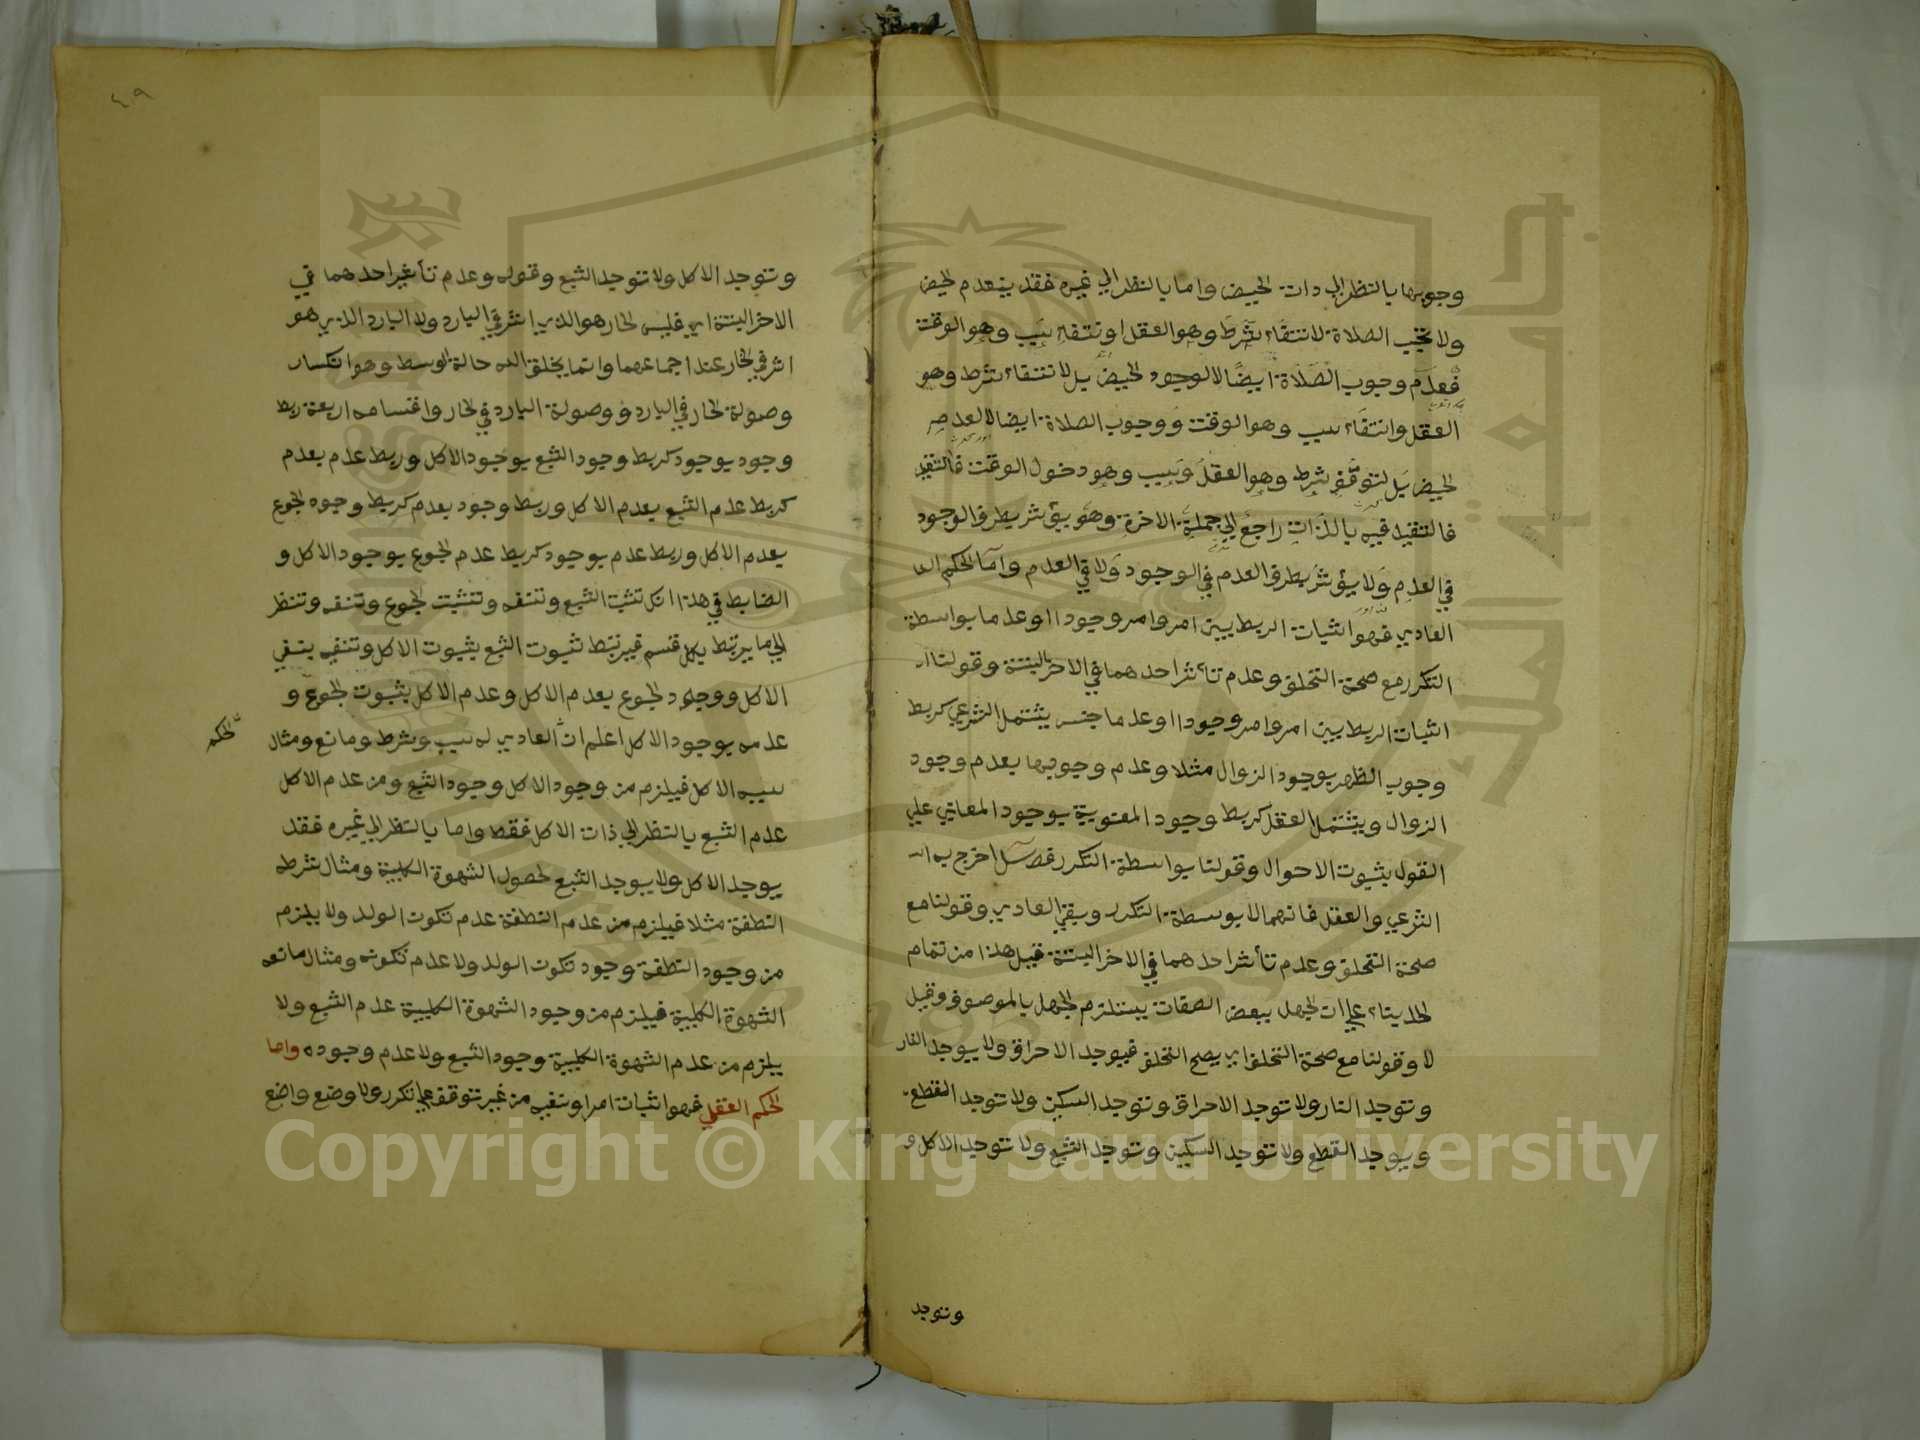 وجوبها بالنظر الى ذات الحيض واما بالنظر الى غيره فقد ينعدم الحيض
ولا تجب الصلاة لانتفاء شرط وهو العقل او تنتفي سبب وهو الوقت
فعدم وجوب الصلاة ايضا لا لوجود الحيض بل لانتفاء شرط وهو
العقل وانتفاء سبب وهو الوقت ووجوب الصلاة ايضا لا لعدم
الحيض بل لتوقف شرط وهو العقل وسبب وهو دخول الوقت
فالتقييد فيه بالذات راجع الى جملة الاخرة وهو يؤثر بطرف الوجود
في العدم ولا يؤثر بطرف العدم في الوجود ولا في العدم واما الحكم
العادي فهو اثبات الربط بين امر وامر وجودا او عدما بواسطة
التكرر مع صحة التخلف وعدم تاثر احدهما في الاخر البتة وقولنا
اثبات الربط بين امر وامر وجودا او عدما جنس يشتمل الشرعي كربط
وجوب الظهر بوجود الزوال مثلا وعدم وجوبها بعدم وجود
الزوال ويشتمل العقل كربط وجود المعنوية بوجود المعاني على
القول بثبوت الاحوال وقولنا بواسطة التكرر فصل اخرج به
الشرعي والعقل فانهما لا بوسطة التكرر وبقي العادي وقولنا مع
صحة التخلف وعدم تأثر احدهما في الاخر البتة قيل هذا من تمام
الحد بناء على ان الجهل ببعض الصفات يستلزم الجهل بالموصوف وقيل
لا وقولنا مع صحة التخلف اي يصح التخلف فيوجد الاحراق ولا يوجد النار
وتوجد النار ولا توجد الاحراق وتوجد السكين ولا توجد القطع
ويوجد القطع ولا توجد السكين وتوجد الشبع ولا توجد الاكل و
وتوجد
٤٠٩
وتوجد الاكل ولا توجد الشبع وقوله وعدم تأثير احدهما في
الاخر البتة اي فليس الحار هو الذي اثر في البارد ولا البارد الذي هو
اثر في الحار عند اجماعهما وانما يخلق الله حالة الوسط وهو انكسار
وصولة الحار في البارد ووصولة البارد في الحار واقسامه اربعة ربط
وجود بوجود كربط وجود الشبع بوجود الاكل وربط عدم بعدم
كربط عدم الشبع بعدم الاكل وربط وجود بعدم كربط وجوه الجوع
بعدم الاكل وربط عدم بوجود كربط عدم الجوع بوجود الاكل و
الضابط في هذا انك تثبت الشبع وتنفه وتثبت الجوع وتنفه وتنظر
الى ما يرتبط بكل قسم فيرتبط ثبوت الشبع بثبوت الاكل وتنفيه بنفي
الاكل ووجود الجوع بعدم الاكل وعدم الاكل بثبوت الجوع و
عدمه بوجود الاكل اعلم ان العادي له سبب وشرط ومانع ومثال
الحكم
سببه الاكل فيلزم من وجود الاكل وجود الشبع ومن عدم الاكل
عدم الشبع بالنظر الى ذات الاكل فقط واما بالنظر الى غيره فقد
يوجد الاكل ولا يوجد الشبع لحصول الشهوة الكلبية ومثال شرطه
النطفة مثلا فيلزم من عدم النطفة عدم تكون الولد ولا يلزم
من وجود النطفة وجود تكون الولد ولا عدم تكونه ومثال مانعه
الشهوة الكلبية فيلزم من وجود الشهوة الكلبية عدم الشبع ولا
يلزم من عدم الشهوة الكلبية وجود الشبع ولا عدم وجوده واما
الحكم العقلي فهو اثبات امر او نفيه من غير توقف على تكرر ولا وضع واضع
Copyright © King Saud University